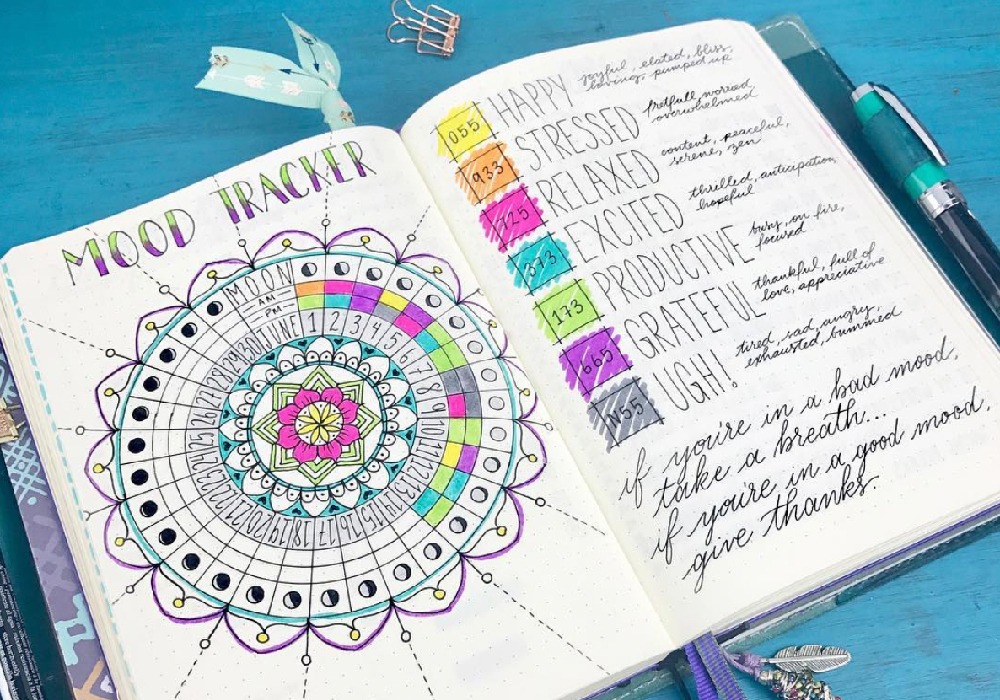 MOOD TRACKER
MOON
AM
PM
JUNE 1 2 3 4 5 6 7 8 9 10 11 12 13 14 15 16 17 18 19 20 21 22 23 24 25 26 27 28 29 30
055 HAPPY joyful, elated, bliss,
loving, pumped up
933 STRESSED fretfull, worried,
overwhelmed
725 RELAXED content, peaceful,
serene, zen
373 EXCITED thrilled, anticipation,
hopeful
173 PRODUCTIVE busy, on fire,
focused
665 GRATEFUL thankful, full of
love, appreciative
N55 UGH! tired, sad, angry,
exhausted, bummed
if you're in a bad mood,
take a breath...
if you're in a good mood,
give thanks.